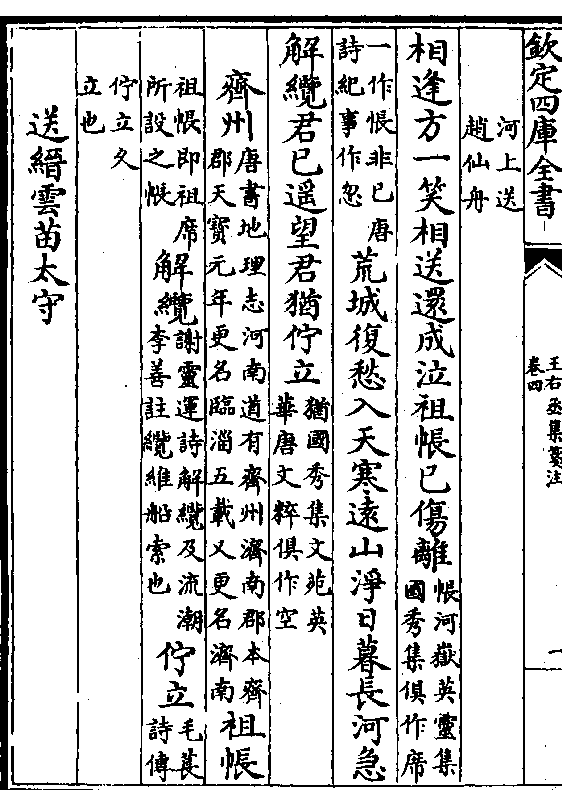 欽定四庫全書
王右丞集箋注
卷四
一
河上送
趙仙舟
相逢方一笑相送還成泣祖帳已傷離帳河嶽英靈集
國秀集俱作席
一作悵非已唐
詩紀事作忽荒城復愁入天寒遠山淨日暮長河急
解纜君已遥望君猶佇立猶國秀集文苑英
華唐文粹俱作空
齊州唐書地理志河南道有齊州濟南郡本齊
郡天寶元年更名臨淄五載又更名濟南祖帳
祖帳即祖席
所設之帳解纜謝靈運詩解纜及流潮
李善註纜維船索也佇立毛萇
詩傳
佇立久
立也
送縉雲苗太守